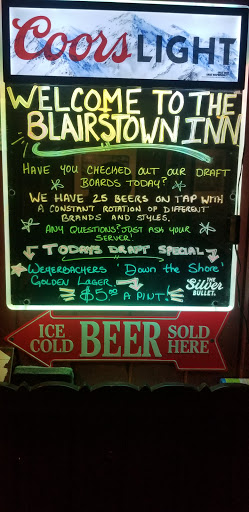 Coors LIGHT
WELCOME TO THE
BLAIRSTOWN INN
HAVE YOU CHECKED OUT OUR DRAFT
BOARDS TODAY?
WE HAVE 25 BEERS ON TAP WITH
A CONSTANT ROTATION OF DIFFERENT
BRANDS AND STYLES.
ANY QUESTIONS? JUST ASK YOUR
SERVER!
TODAYS DRAFT SPECIAL
WEYERBACHERS 'DOWN THE SHORE'
GOLDEN LAGER
$5.00 A PINT!
THE Silver BULLET.
ICE COLD BEER SOLD HERE